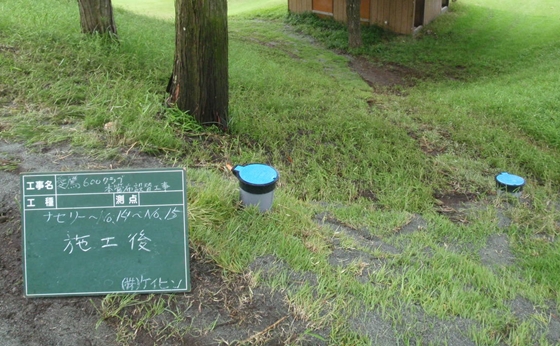 工事名 600クラブ
本管布設替工事
工種 測点
ナセリー〜No.14〜No.15
施工後
㈱ケイヒン